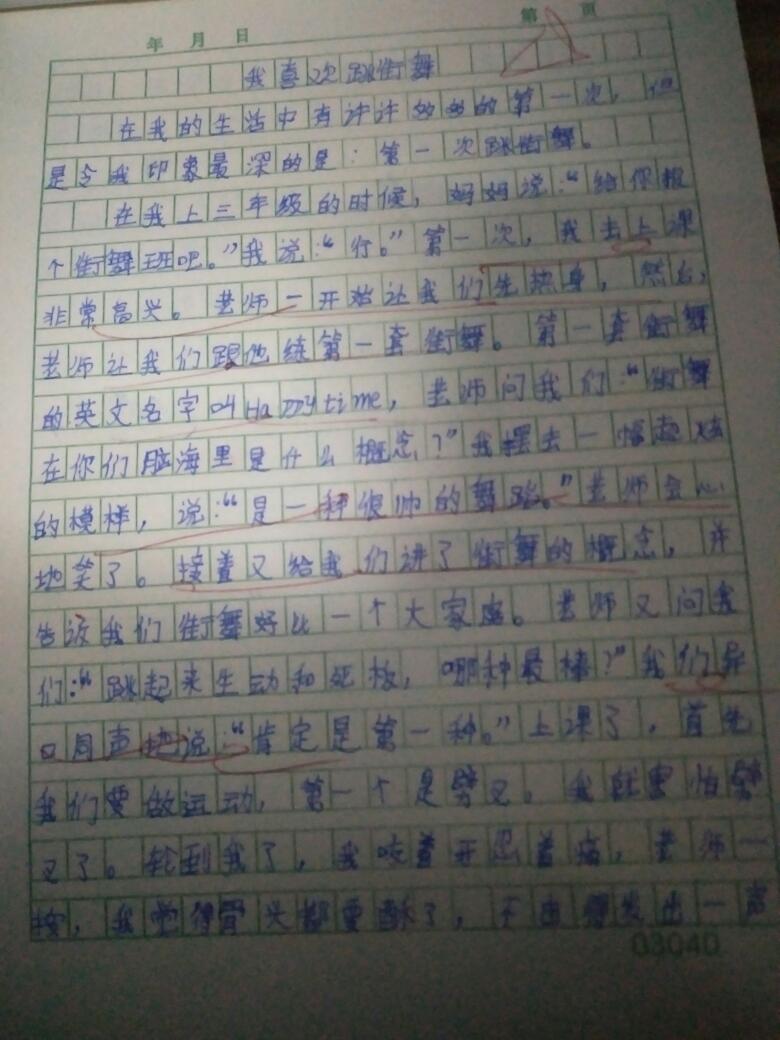 年 月 日 第 页
我喜欢跳街舞
在我的生活中有许许多多的第一次，但
是令我印象最深的是：第一次跳街舞。
在我上三年级的时候，妈妈说：“给你报
个街舞班吧。”我说：“行。”第一次，我去上课
非常高兴。老师一开始让我们先热身，然后，
老师让我们跟他练第一套街舞。第一套街舞
的英文名字叫Happytime，老师问我们：“街舞
在你们脑海里是什么概念？”我摆出一幅超炫
的模样，说：“是一种很帅的舞蹈。”老师会心
地笑了。接着又给我们讲了街舞的概念，并
告诉我们街舞好比一个大家庭。老师又问我
们：“跳起来生动和死板，哪种最棒？”我们异
口同声地说：“肯定是第一种。”上课了，首先
我们要做运动，第一个是劈叉。我就害怕劈
叉了。轮到我了，我咬着牙忍着痛，老师一
按，我觉得骨头都要酥了，不由得发出一声
03040